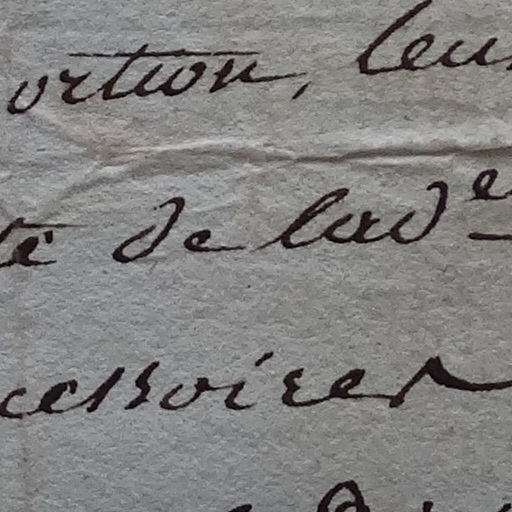 ortion, leu
té de lad e
ccessoires